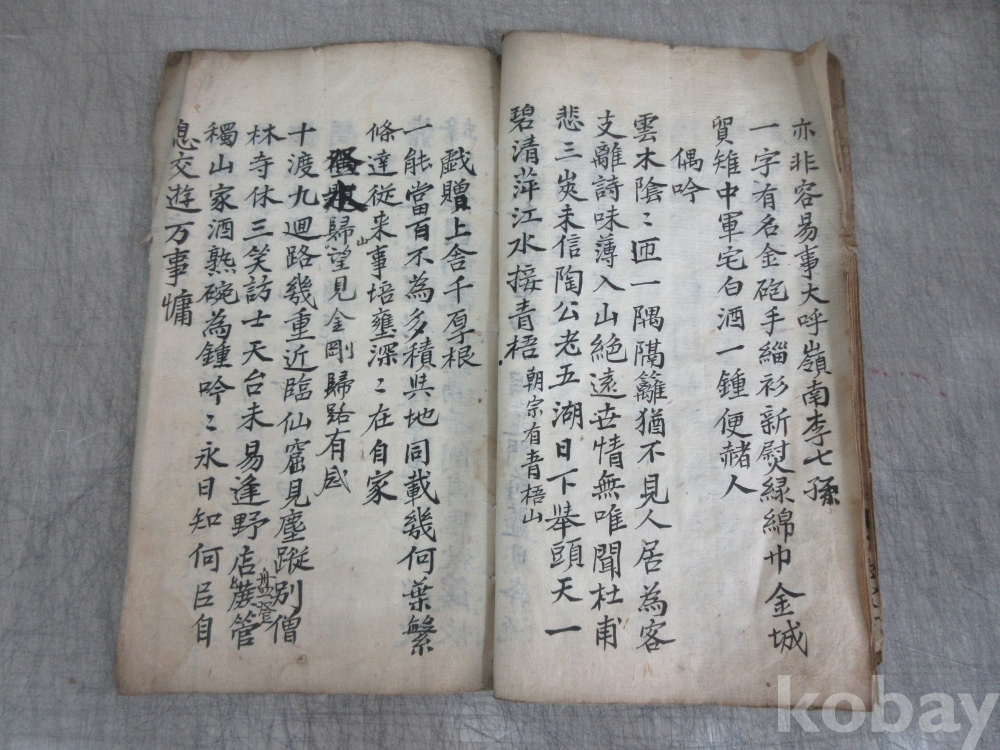 亦非容易事大呼嶺南李七孫
一字有名金砲手緇衫新熨緑綿巾金城
賀雉中軍宅白酒一鍾便赭人
偶吟
雲木陰〻匝一隅隔籬猶不見人居為客
支離詩味薄入山絶遠世情無唯聞杜甫
悲三峽未信陶公老五湖日下擧頭天一
碧清萍江水接青梧 朝宗有青梧山
戯贈上舍千厚根
一能當百不為多積與地同載幾何葉繁
條達從来事培壅深〻在自家
歸望見金剛山歸路有感
十渡九廻路幾重近臨仙窟見塵蹤別僧
林寺休三笑訪士天台未易逢野店蔟管
盤登
穉山家酒熟碗為鍾吟〻永日知何臣自
息交遊万事慵
kobay